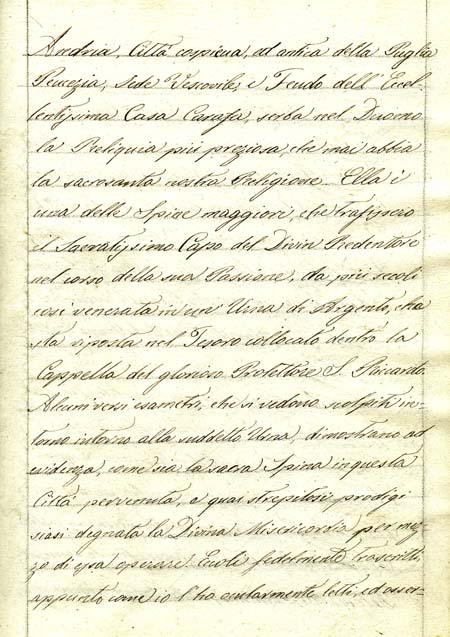 Andria, Città cospicua, ed antica della Puglia
Peucezia, Sede Vescovile, e Feudo dell'Ecel-
lentissima Casa Carafa, serba nel Duomo
la Reliquia più preziosa, che mai abbia
la sacrosanta nostra Religione. Ella è
una delle Spine maggiori, che trafissero
il Sacratissimo Capo del Divin Redentore
nel corso della sua Passione, da più secoli
così venerata in un' Urna di Argento, che
sta riposta nel Tesoro collocato dentro la
Cappella del glorioso Protettore S. Riccardo.
Alcuni versi esametri, che si vedono scolpiti in-
torno intorno alla suddetta Urna, dimostrano ad
evidenza, come sia la sacra Spina in questa
Città pervenuta, e quai strepitosi prodigi
siasi degnata la Divina Misericordia per mez-
zo di essa operare. Eccoli fedelmente trascritti,
appunto come io l'ho ocularmente letti, ed osser-